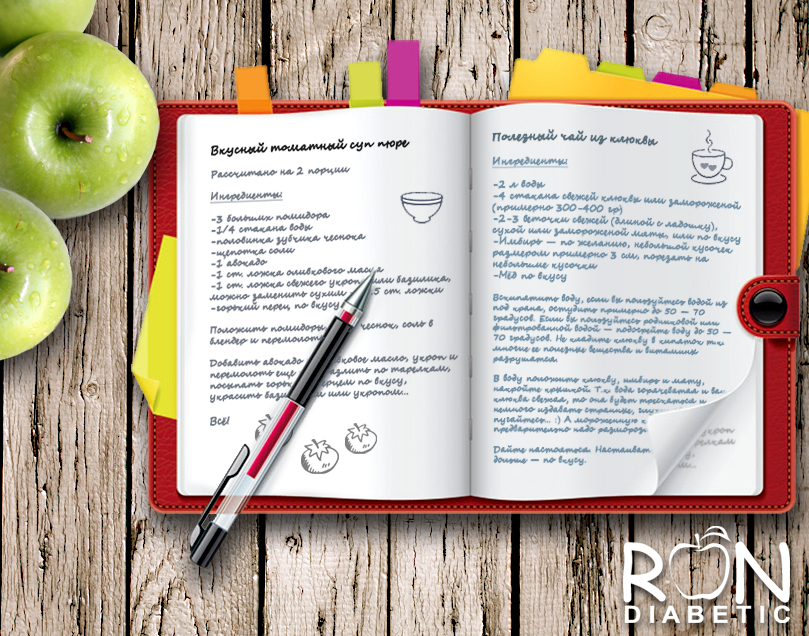 Вкусный томатный суп пюре
Рассчитано на 2 порции
Ингредиенты:
-3 больших помидора
-1/4 стакана воды
-половинка зубчика чеснока
-щепотка соли
-1 авокадо
-1 ст. ложка оливкового масла
-1 ст. ложка свежего укропа или базилика,
можно заменить сухим 5 ст. ложки
-горький перец, по вкусу
Положить помидоры, чеснок, соль в
блендер и перемолоть
Добавить авокадо, масло, укроп и
перемолоть еще разлить по тарелкам,
посыпать перцем по вкусу,
украсить или укропом..
Всё!
Полезный чай из клюквы
Ингредиенты:
-2 л воды
-4 стакана свежей клюквы или замороженой
(примерно 300-400 гр)
-2-3 веточки свежей (длиной с ладошку),
сухой или замороженой мяты, или по вкусу
-Имбирь — по желанию, небольшой кусочек
размером примерно 3 см, порезать на
небольшие кусочки
-Мёд по вкусу
Вскипятить воду, если вы пользуйтесь водой из
под крана, остудите примерно до 50 — 70
градусов. Если вы пользуйтесь родниковой или
фильтрованной водой — подогрейте воду до 50 —
70 градусов. Не кладите клюкву в кипяток т.к
многие ее полезные вещества и витамины
разрушатся.
В воду положить клюкву, имбирь и мяту,
накройте крышкой. Т.к вода горячеватая и
клюква свежая, то она будет трескаться и
немного издавать странные,
пугайтесь.. :) А мороженную
предварительно надо
Дайте настояться.
дольше — по вкусу.
укроп
тарелкам
RON
DIABETIC